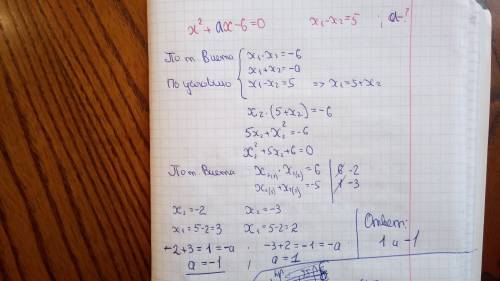 x² + ax - 6 = 0   x₁ - x₂ = 5   ; a - ?
По т. Виета { x₁ · x₂ = -6
x₁ + x₂ = -a
По условию x₁ - x₂ = 5 => x₁ = 5 + x₂
x₂ · (5 + x₂) = -6
5x₂ + x₂² = -6
x₂² + 5x₂ + 6 = 0
По т. Виета x₂₍₁₎ · x₂₍₂₎ = 6 | -2
x₂₍₁₎ + x₂₍₂₎ = -5 | -3
x₂ = -2   x₂ = -3
x₁ = 5 - 2 = 3   x₁ = 5 - 2 = 2
-2 + 3 = 1 = -a   -3 + 2 = -1 = -a
a = -1 ; a = 1
Ответ:
1 и -1